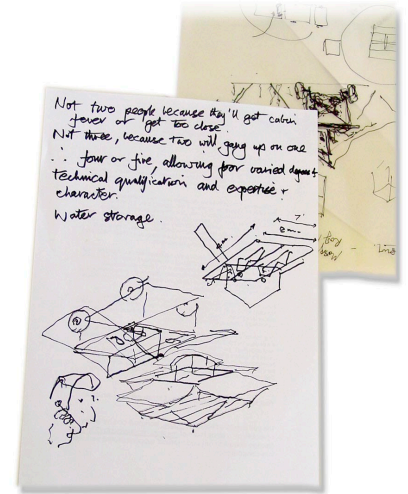 Not two people because they'll get cabin
fever or 'get too close'
Not three, because two will gang up on one
∴ four or five, allowing for varied degrees of
technical qualification and expertise +
character.
Water storage.
7'